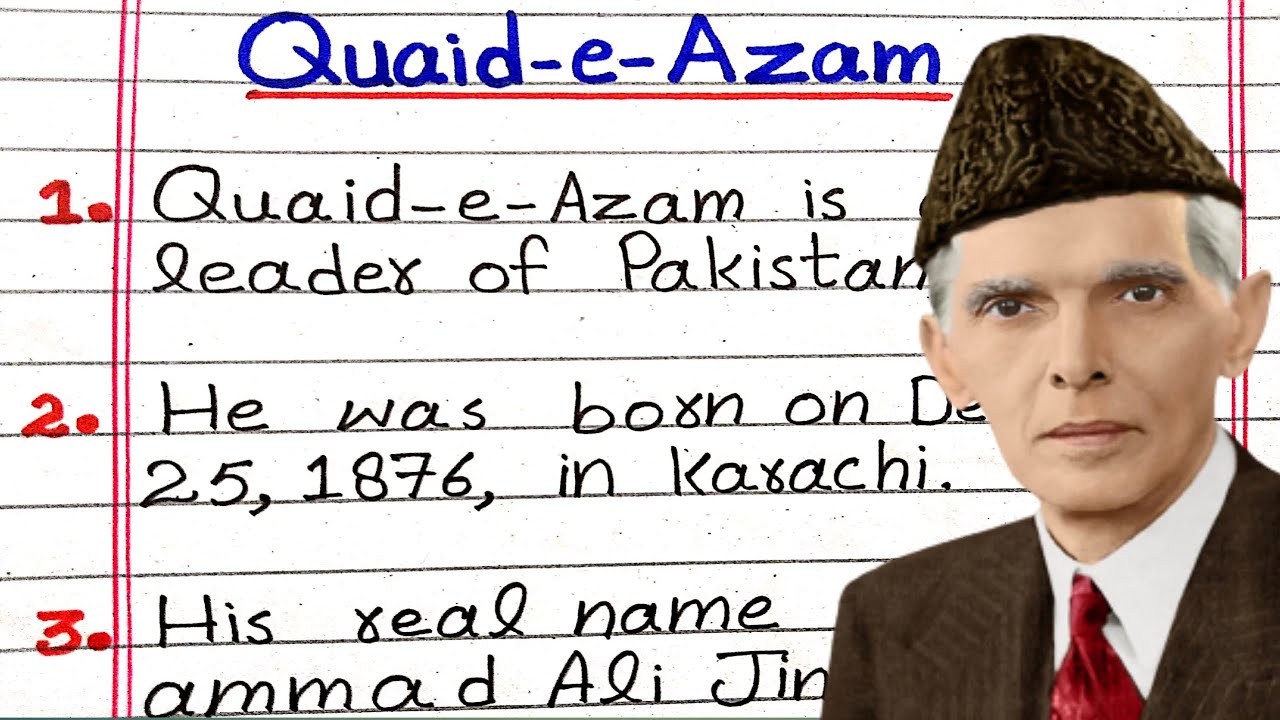 Quaid-e-Azam
1. Quaid-e-Azam is
leader of Pakistan
2. He was born on
25, 1876, in Karachi.
3. His real name
ammad Ali